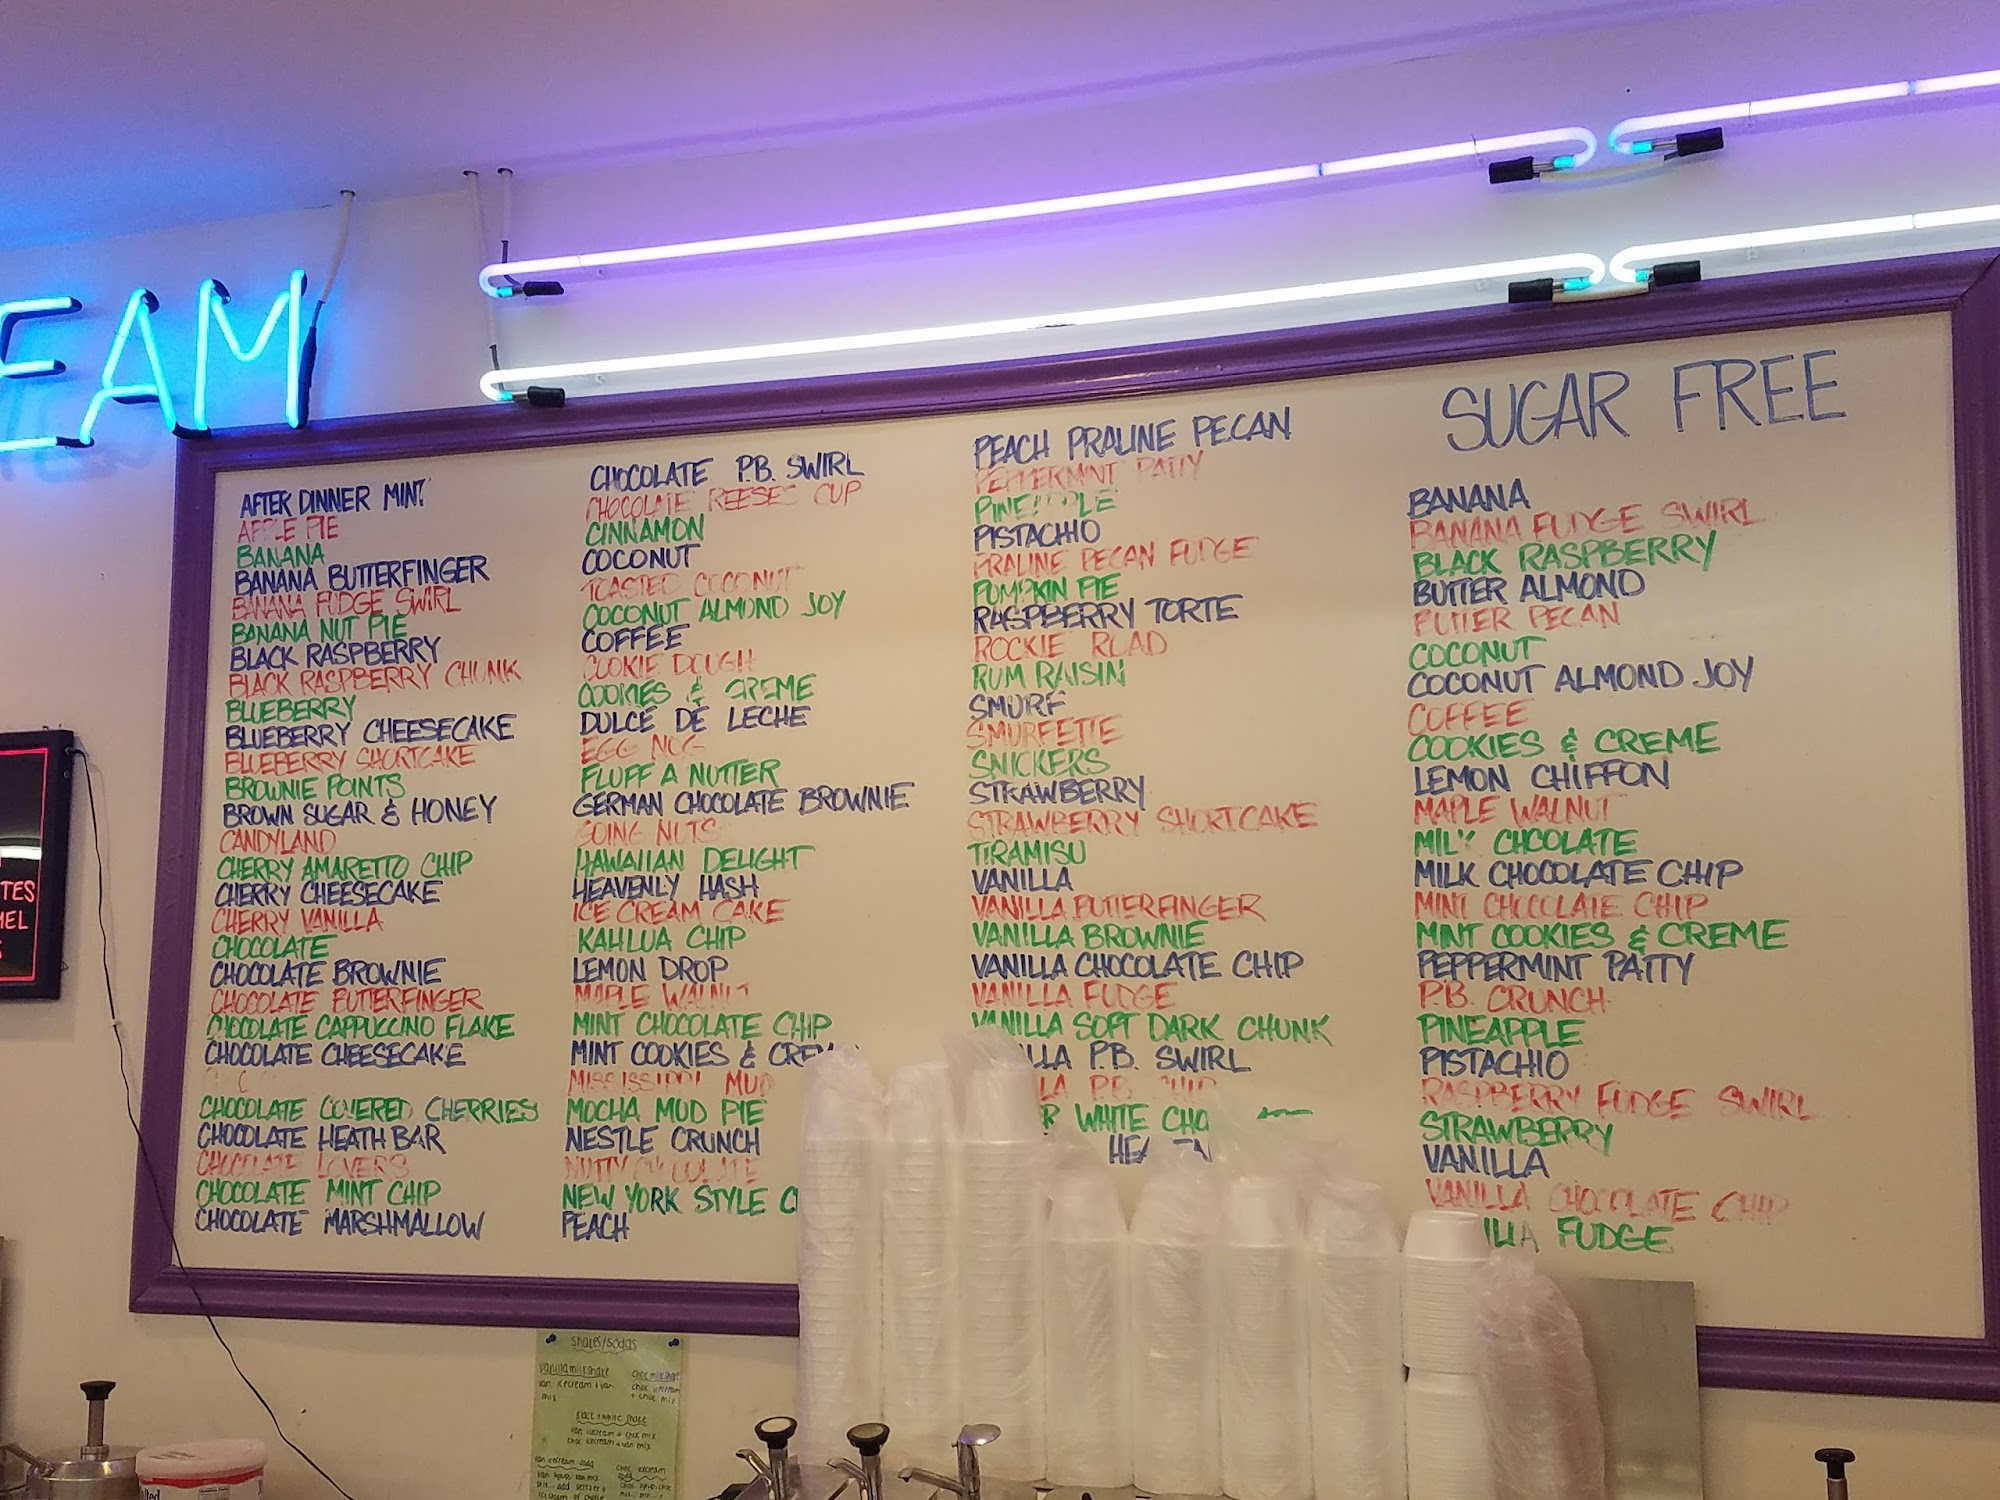 EAM
AFTER DINNER MINT
APPLE PIE
BANANA
BANANA BUTTERFINGER
BANANA FUDGE SWIRL
BANANA NUT PIE
BLACK RASPBERRY
BLACK RASPBERRY CHUNK
BLUEBERRY
BLUEBERRY CHEESECAKE
BLUEBERRY SHORTCAKE
BROWNIE POINTS
BROWN SUGAR & HONEY
CANDYLAND
CHERRY AMARETTO CHIP
CHERRY CHEESECAKE
CHERRY VANILLA
CHOCOLATE
CHOCOLATE BROWNIE
CHOCOLATE BUTTERFINGER
CHOCOLATE CAPPUCCINO FLAKE
CHOCOLATE CHEESECAKE
CHOCOLATE COVERED CHERRIES
CHOCOLATE HEATH BAR
CHOCOLATE LOVERS
CHOCOLATE MINT CHIP
CHOCOLATE MARSHMALLOW
CHOCOLATE P.B. SWIRL
CHOCOLATE REESES CUP
CINNAMON
COCONUT
TOASTED COCONUT
COCONUT ALMOND JOY
COFFEE
COOKIE DOUGH
COOKIES & CREME
DULCE DE LECHE
EGG NOG
FLUFF A NUTTER
GERMAN CHOCOLATE BROWNIE
GOING NUTS
HAWAIIAN DELIGHT
HEAVENLY HASH
ICE CREAM CAKE
KAHLUA CHIP
LEMON DROP
MAPLE WALNUT
MINT CHOCOLATE CHIP
MINT COOKIES & CREM
MISSISSIPPI MUD
MOCHA MUD PIE
NESTLE CRUNCH
NUTTY CHOCOLATE
NEW YORK STYLE C
PEACH
PEACH PRALINE PECAN
PEPPERMINT PATTY
PINEAPPLE
PISTACHIO
PRALINE PECAN FUDGE
PUMPKIN PIE
RASPBERRY TORTE
ROCKIE ROAD
RUM RAISIN
SMURF
SMURFETTE
SNICKERS
STRAWBERRY
STRAWBERRY SHORTCAKE
TIRAMISU
VANILLA
VANILLA BUTTERFINGER
VANILLA BROWNIE
VANILLA CHOCOLATE CHIP
VANILLA FUDGE
VANILLA SOFT DARK CHUNK
LLA P.B. SWIRL
LA P.B. CHIP
R WHITE CHO
SUGAR FREE
BANANA
BANANA FUDGE SWIRL
BLACK RASPBERRY
BUTTER ALMOND
BUTTER PECAN
COCONUT
COCONUT ALMOND JOY
COFFEE
COOKIES & CREME
LEMON CHIFFON
MAPLE WALNUT
MILK CHCOLATE
MILK CHOCOLATE CHIP
MINT CHOCOLATE CHIP
MINT COOKIES & CREME
PEPPERMINT PATTY
P.B. CRUNCH
PINEAPPLE
PISTACHIO
RASPBERRY FUDGE SWIRL
STRAWBERRY
VANILLA
VANILLA CHOCOLATE CHIP
ILLA FUDGE
TES
MEL
S
shakes/sodas
vanilla milkshake
van. icecream + van mix
choc milkshake
choc icecream + choc mix
Black + white shake
van icecream + choc mix
choc icecream + van mix
van icecream soda
choc icecream soda